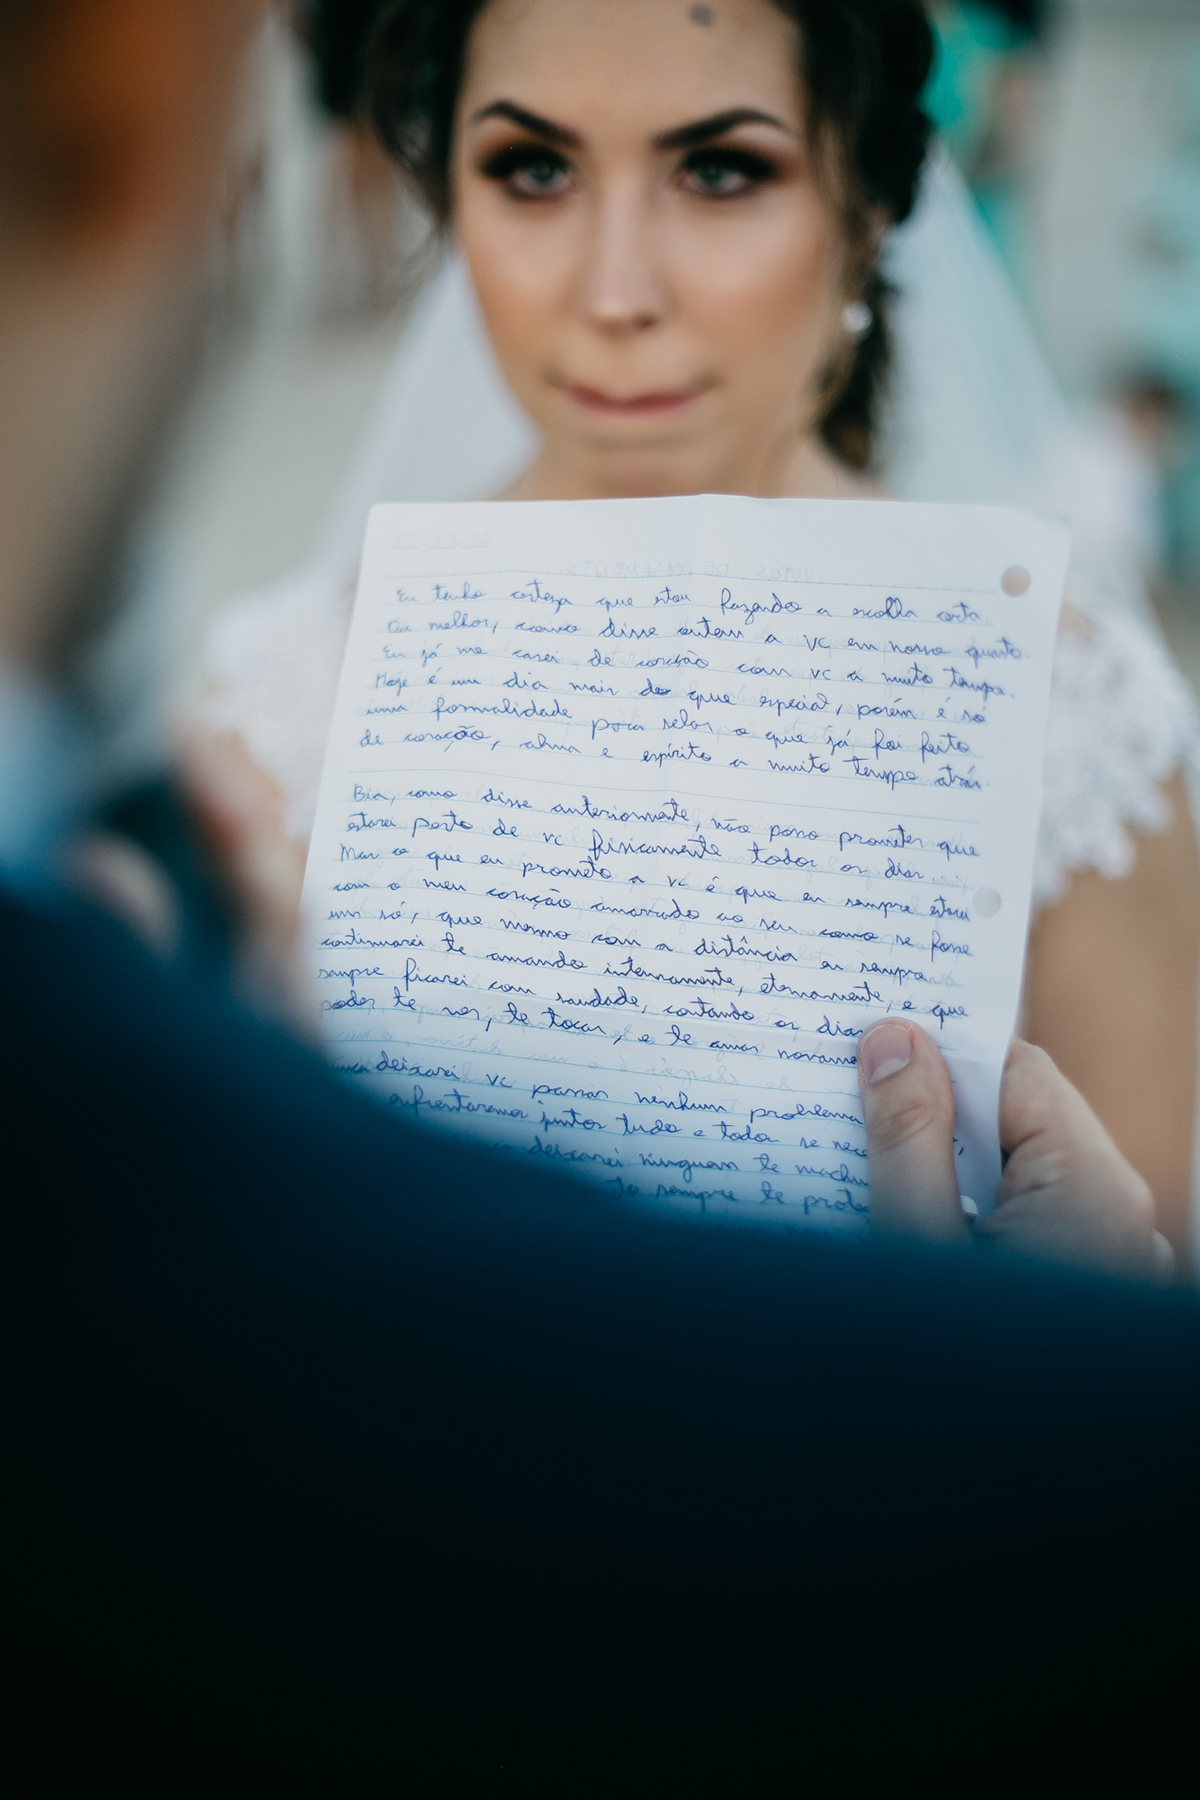 Eu tenho certeza que estou fazendo a escolha certa.
Ou melhor, como disse ontem a vc em nosso quarto.
Eu já me casei de coração com vc a muito tempo.
Hoje é um dia mais do que especial, porém é só
uma formalidade para selar o que já foi feito
de coração, alma e espírito a muito tempo atrás.
Bia, como disse anteriormente, não posso prometer que
estarei perto de vc fisicamente todos os dias
Mas o que eu prometo a vc é que eu sempre estarei
com o meu coração amarrado ao seu como se fosse
um só, que mesmo com a distância eu sempre
continuarei te amando internamente, eternamente, e que
sempre ficarei com saudade, contando os dias
poder te ver, te tocar, e te amar novame
deixarei vc passar nenhum problema
enfrentaremos juntos tudo e todos se nece
deixarei ninguem te machu
sempre te prote
VOTOS DE CASAMENTO